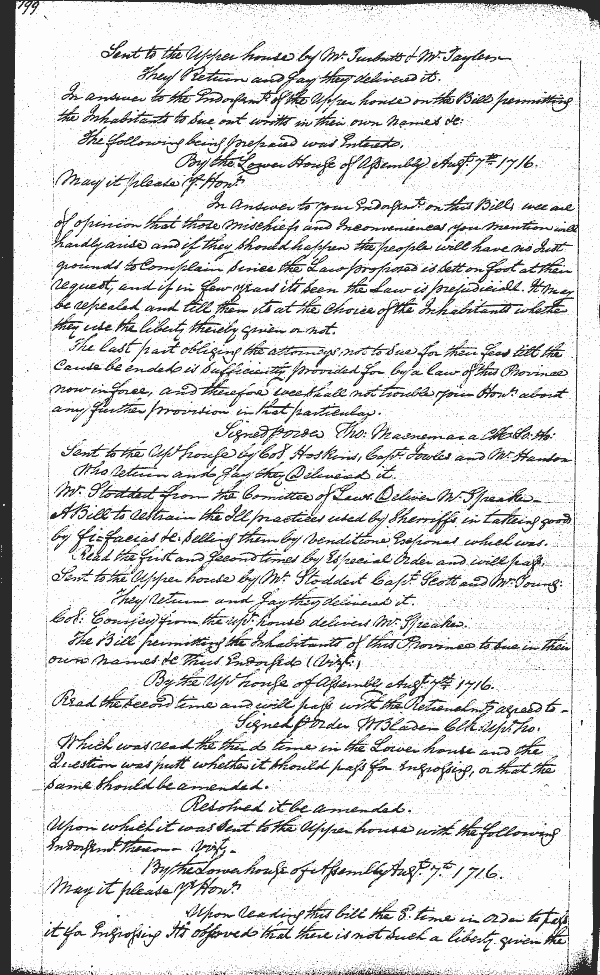 199
Sent to the Upper house by Mr. Turbutt & Mr. Taylor
They Return and say they delivered it.
In answer to the Endorsmt. of the Upper house on the Bill permitting
the Inhabitants to sue out writts in their own Names &c:
The following being prepared was Entered,
By the Lower House of Assembly Augt. 7th. 1716.
May it please Yr. Honrs.
In Answer to your Endorsmt. on this Bill, wee are
of opinion that those mischiefs and Inconveniences you mention will
hardly arise and if they should happen the people will have no Just
grounds to Complain since the Law proposed is sett on foot at their
request, and if in few years its been the Law is prejudiciall. It may
be repealed and till then its at the Choice of the Inhabitants whether
they use the liberty thereby given or not.
The last part obliging the attorneys not to sue for their fees till the
Cause be ended is sufficiently provided for by a law of this Province
now in force, and therefore wee shall not trouble your Honrs. about
any further provision in that particular.
Signed p order Tho: Macnemara Clk Lo: Ho:
Sent to the Upr. house by Col. Hoskins, Capt. Fowles and Mr. Hanson
Who return and say they Delivered it.
Mr. Stoddert from the Comittee of Laws Delivers Mr. Speaker
A Bill to restrain the Ill practices used by Sherriffs in taking goods
by fi: facias &c. selling them by venditioni Exponas which was.
Read the first and second times by Especial Order and will pass.
Sent to the Upper house by Mr. Stoddert Capt. Scott and Mr. Young:
They return and say they delivered it.
Col: from the upr. house delivers Mr. Speaker.
The Bill permitting the Inhabitants of this Province to sue in their
own names &c thus Endorsed (vizt.)
By the Upr. house of Assembly Augt. 7th. 1716.
Read the second time and will pass with the agreed to -
Signed p order W Bladen Clk: Upr. Ho.
Which was read the third time in the Lower house and the
Question was putt whether it should pass for Engrossing, or that the
same should be amended.
Resolved it be amended.
Upon which it was sent to the Upper house with the following
Endorsmt. thereon vizt.
By the Lower house of Assembly Augt. 7th. 1716.
May it please Yr. Honrs.
Upon reading this bill the 3. time in order to pass
it for Engrossing It's observed that there is not such a liberty given the